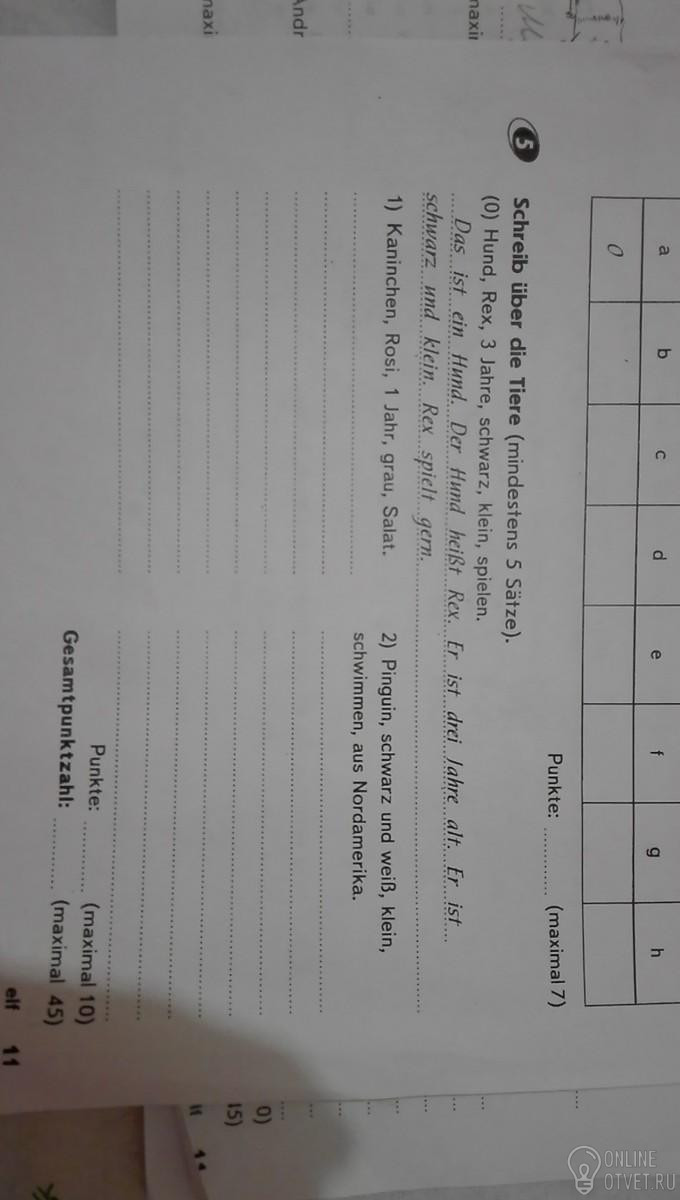 a b c d e f g h
0
Punkte: ............ (maximal 7)
5 Schreib über die Tiere (mindestens 5 Sätze).
(0) Hund, Rex, 3 Jahre, schwarz, klein, spielen.
Das ist ein Hund. Der Hund heißt Rex. Er ist drei Jahre alt. Er ist
schwarz und klein. Rex spielt gern.
1) Kaninchen, Rosi, 1 Jahr, grau, Salat.
2) Pinguin, schwarz und weiß, klein,
schwimmen, aus Nordamerika.
Punkte: ............ (maximal 10)
Gesamtpunktzahl: ............ (maximal 45)
elf 11
ONLINE
OTVET.RU